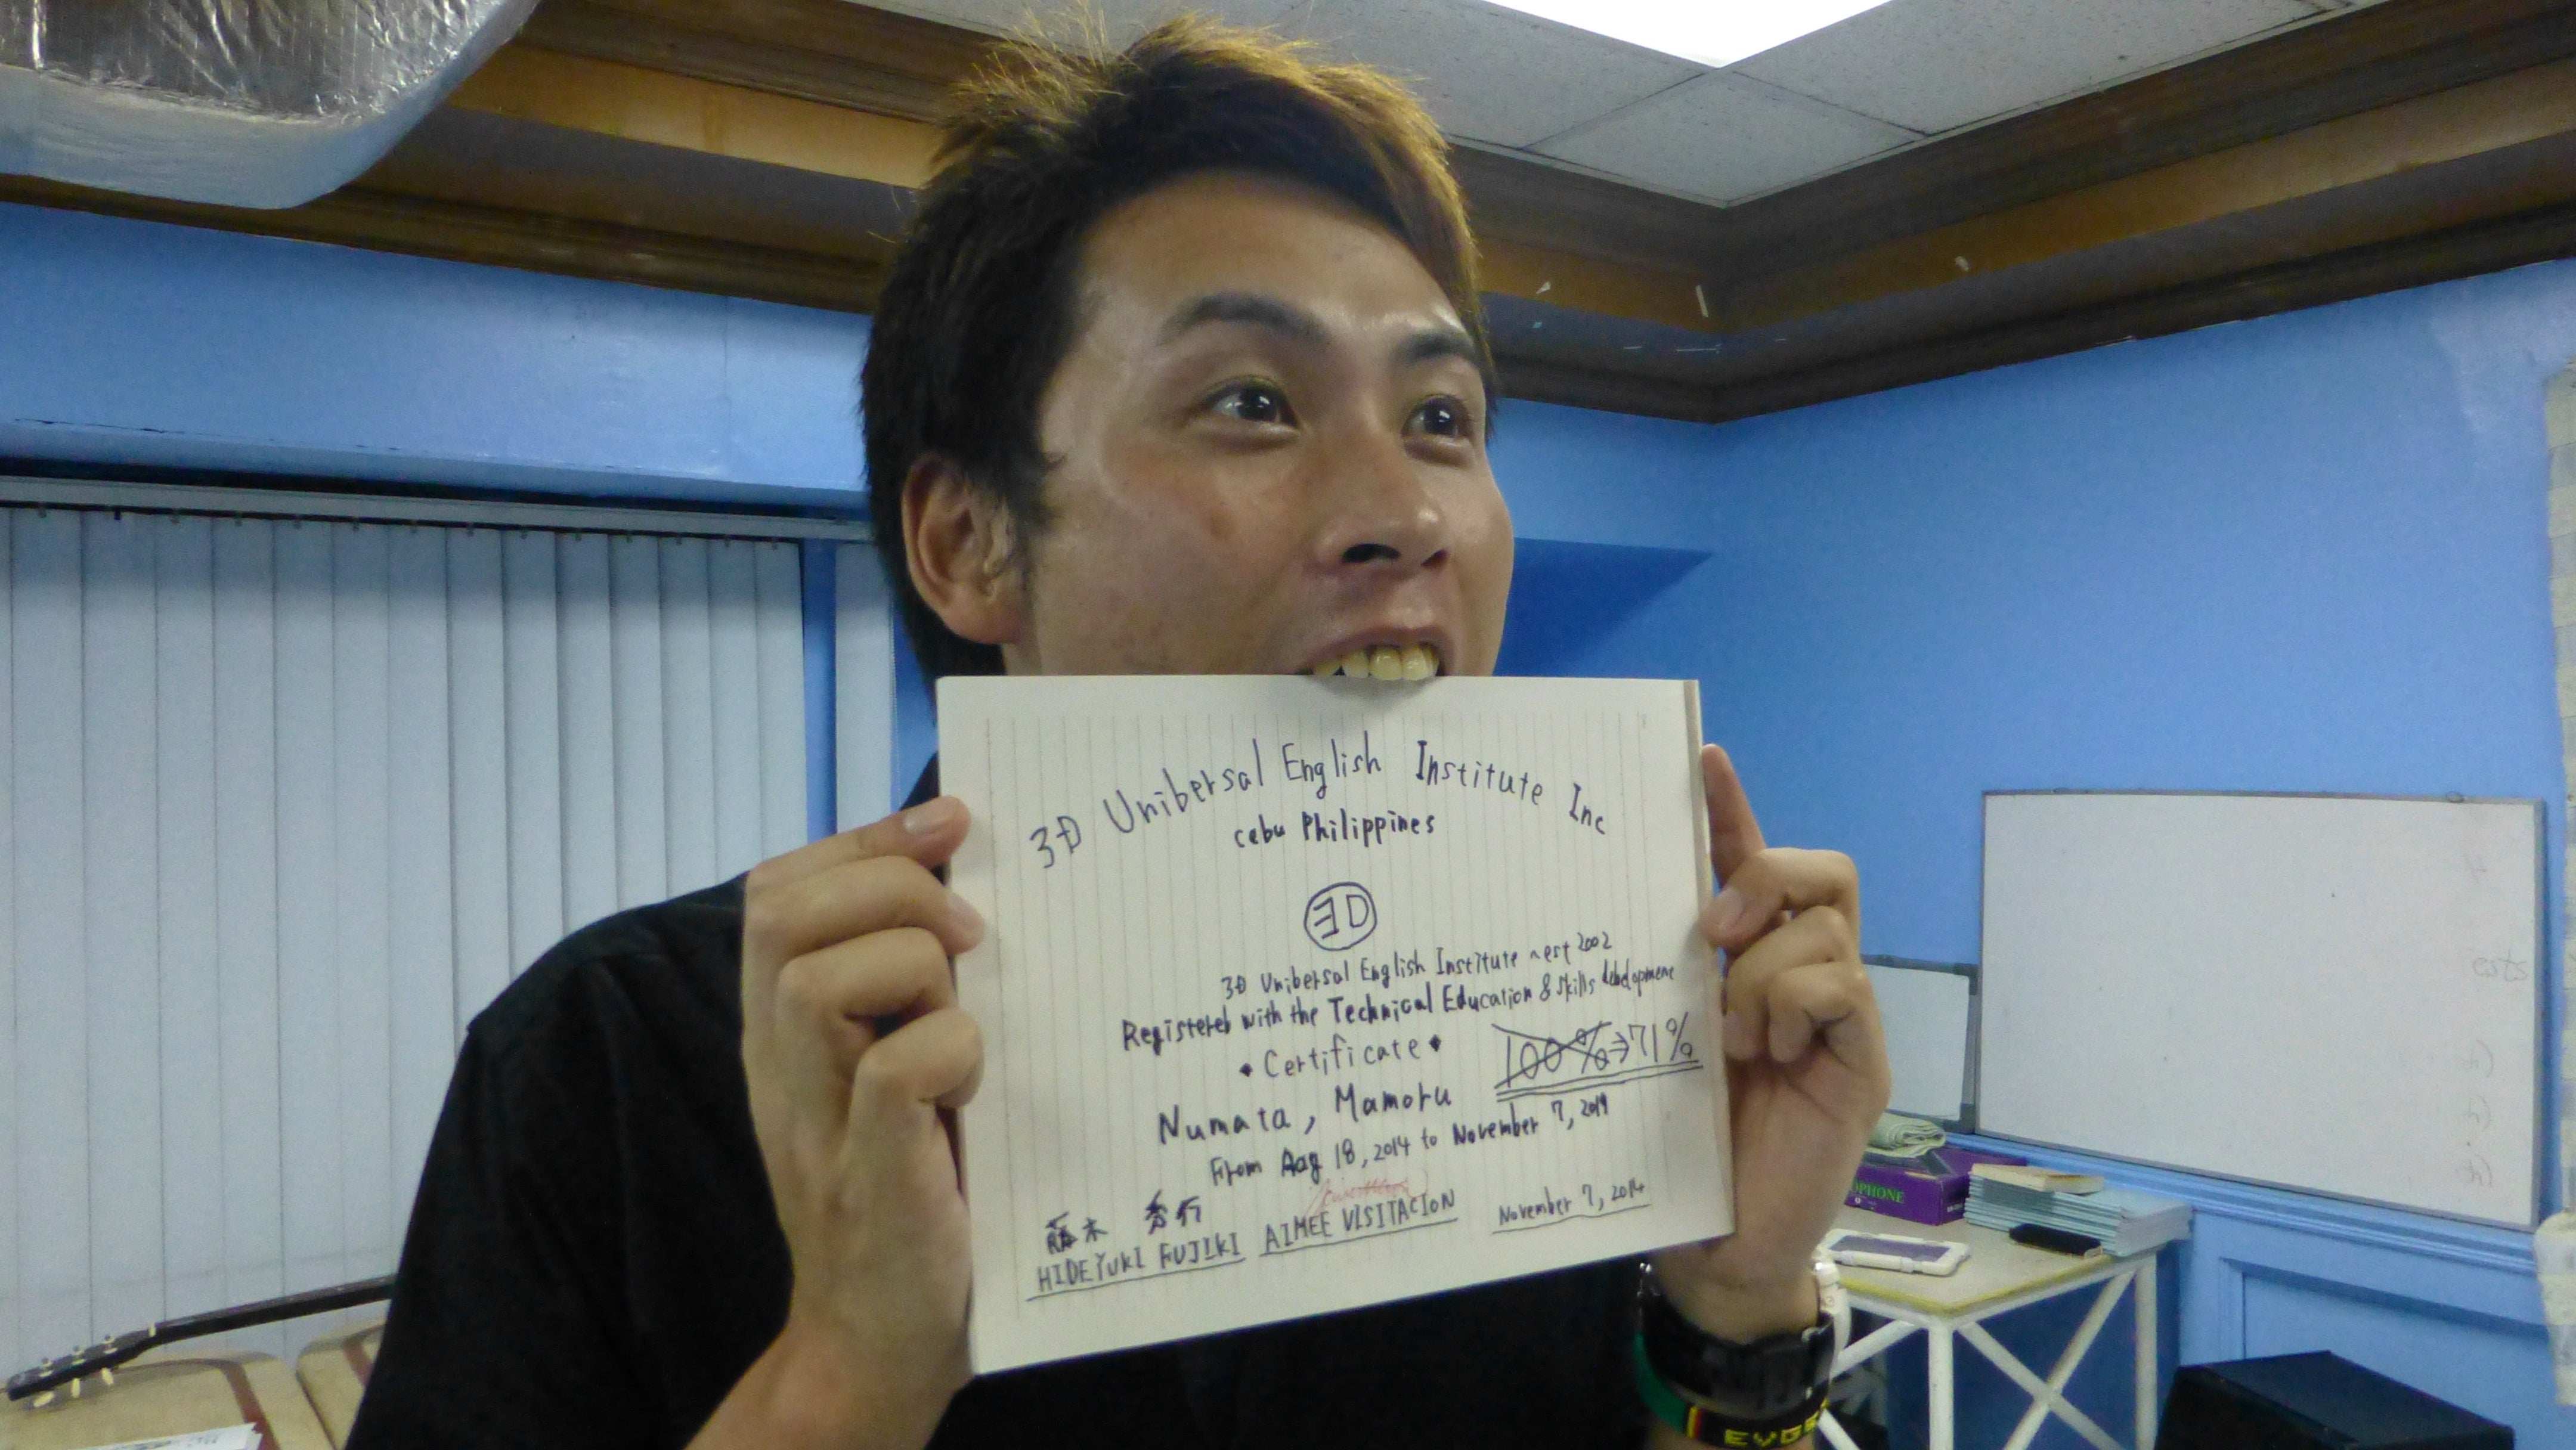 3D Unibersal English Institute Inc
cebu Philippines
3D
3D Unibersal English Institute ~ est 2002
Registered with the Technical Education & skills debelopment
• Certificate •
100% → 71%
Numata, Mamoru
From Aug 18, 2014 to November 7, 2014
藤木 秀行
HIDEYUKI FUJIKI
AIMEE VISITACION
November 7, 2014
PHONE